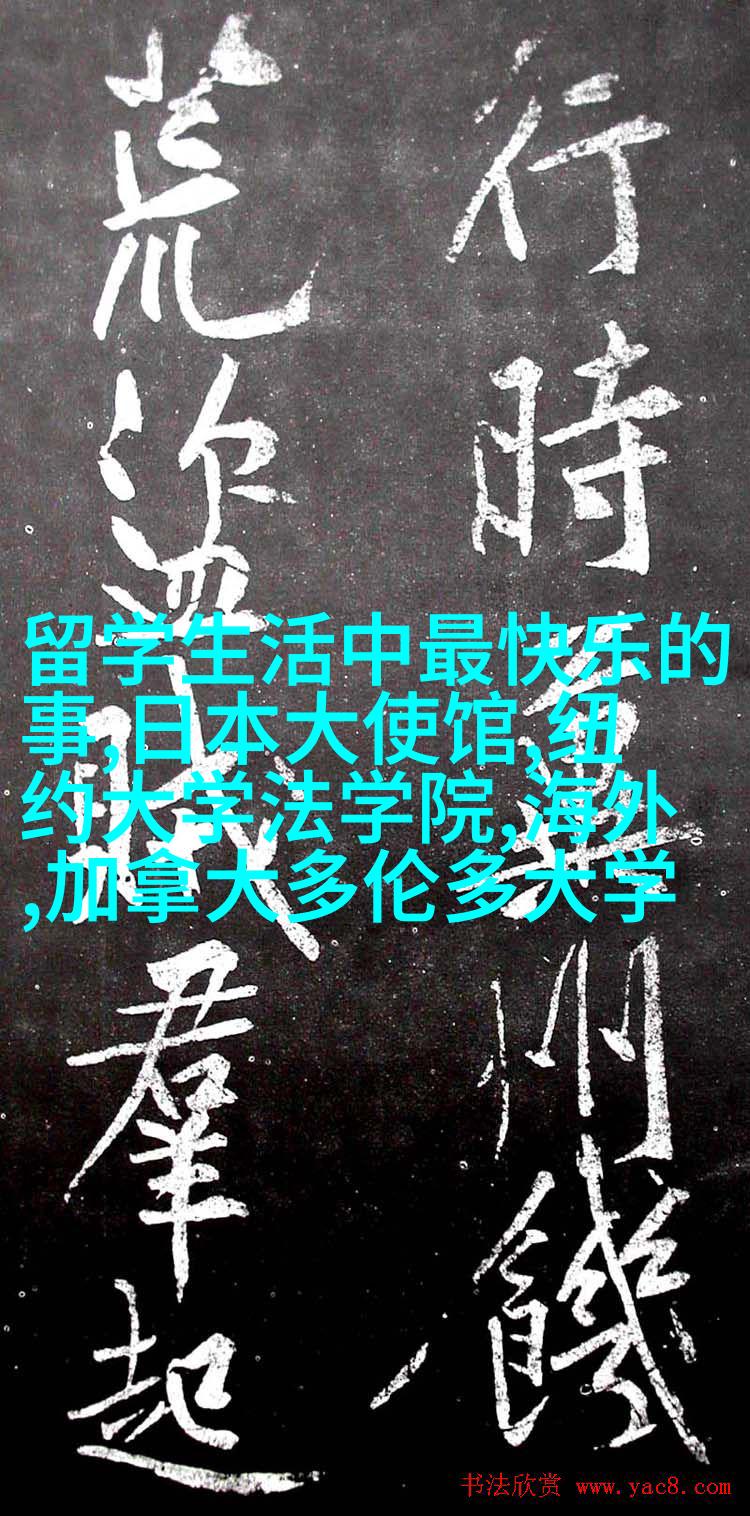 行時州饑
荒盜賊羣起
留学生活中最快乐的
事,日本大使馆,纽
约大学法学院,海外
,加拿大多伦多大学
书法欣赏 www.yac8.com